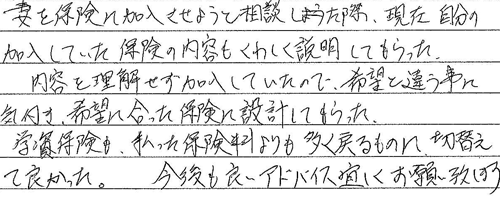 妻を保険に加入させようと相談しまった際、現在自分の
加入していた保険の内容もくわしく説明してもらった。
内容を理解せず加入していたので、希望と違う事に
気付き、希望に合った保険に設計してもらった。
学資保険も、払った保険料よりも多く戻るものに、切替え
て良かった。 今後も良いアドバイス宜しくお願い致します